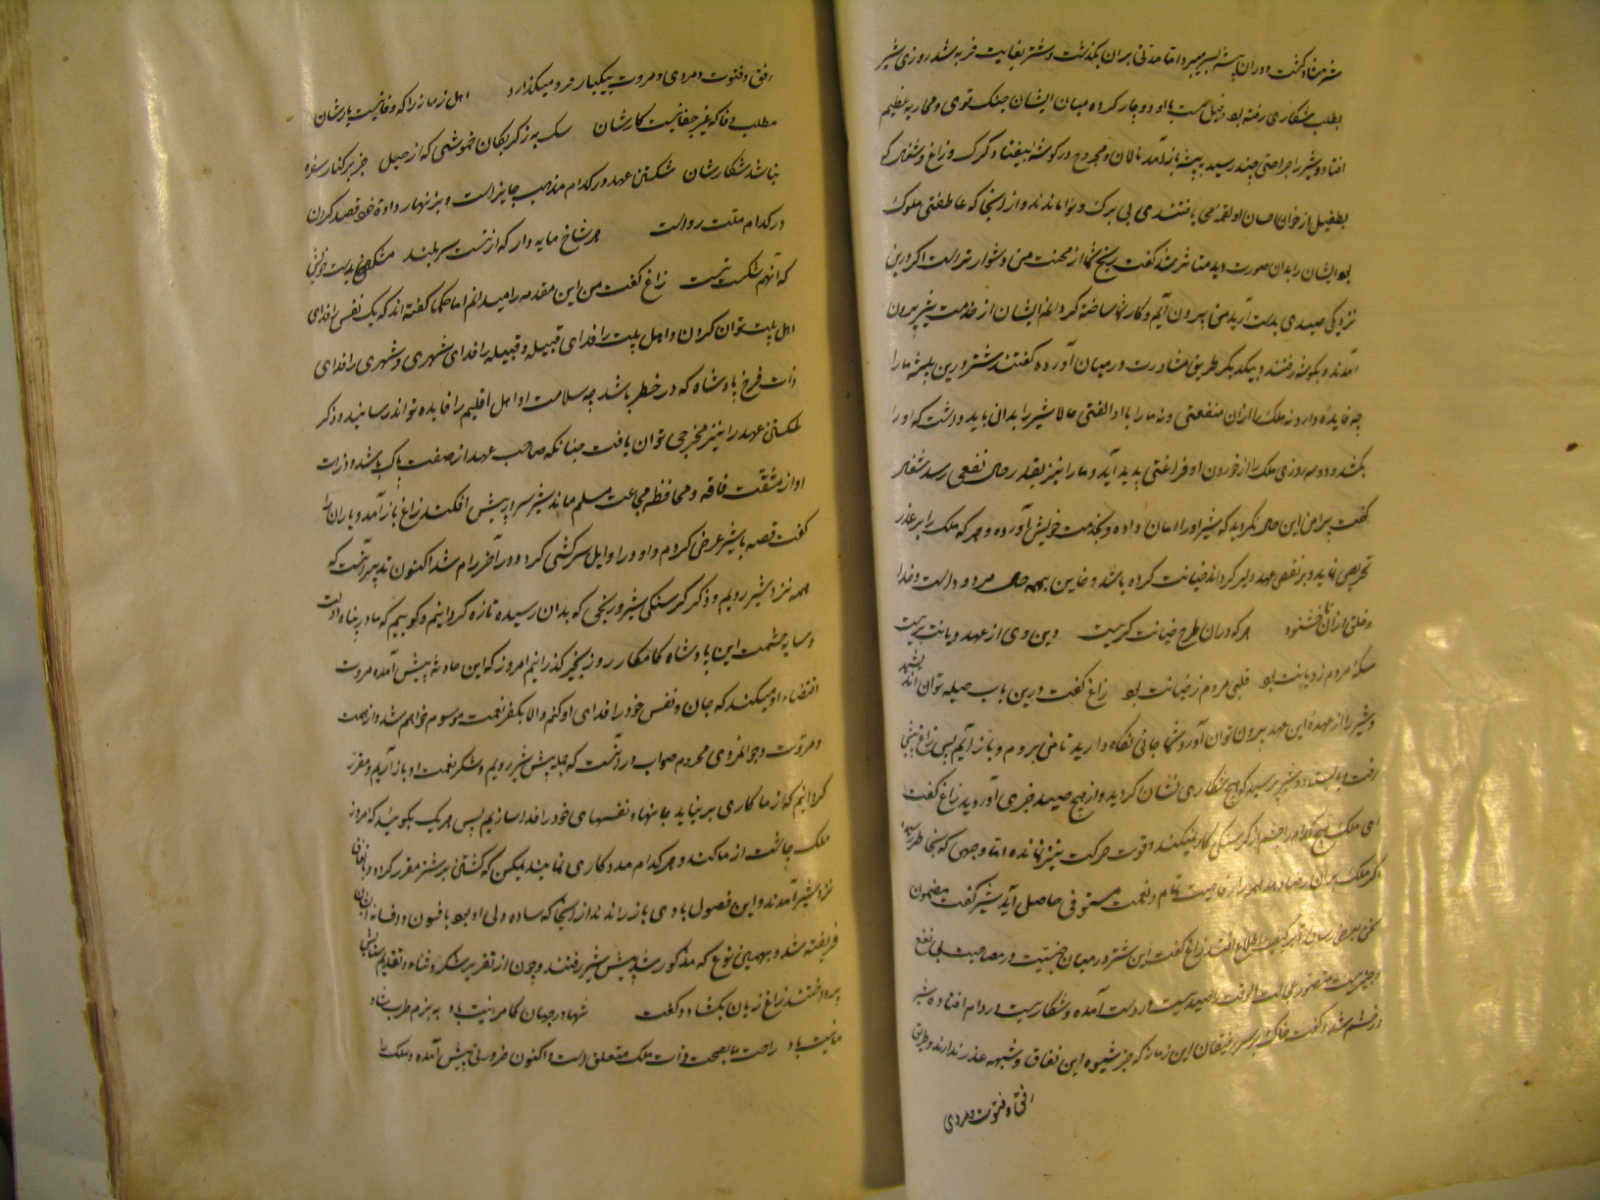 می‌برد اما مدتی بران بگذشت و شتر بغایت فربه شد روزی شیر
بطلب شکاری رفته بود و فیل مست با او دوچار کرده میان ایشان جنک قوی و محاربه عظیم
افتاد و شیر را جراحتی چند رسید به بیشه باز آمد نالان و مجروح در گوشه بیفتاد و کرک و زاغ و شغال که
بطفیل از خوان احسان او لقمه می یافتندی بی برک و نوا ماندند و از انجا که عاطفتی ملوک
بود ایشان را بدان صورت دید متاثر شد گفت رنج شما از محنت من دشوارتر است اگر درین
نزدیکی صیدی بدست آرید من بیرون آیم و کار شما ساخته گردانم ایشان از خدمت شیر بیرون
آمدند و بگوشه رفتند و بیکدیگر طریق مشاورت در میان آورده گفتند شتر درین بیشه ما را
چه فایده دارد نه ملک را ازان منفعتی و نه ما را با او الفتی حالا شیر را بدان باید داشت که او را
بکشد و دو سه روزی ملک را از خوردن او فراغتی پدید آید و ما را نیز بقدر حال نفعی رسد شغال
گفت پیرامن این حال مگردید که شیر او را امان داده و بخدمت خویش آورده و هر که ملک را بر غدر
تحریص نماید و بر نقض عهد دلیر گرداند خیانت کرده باشد و خاین بهمه حال مردود است و خدا
و خلق ازان ناخشنود هر که دران طرح خیانت گریست دین وی از عهد دیانت بریست
سکه مردم ز دیانت بود قلبی مردم ز خیانت بود زاغ گفت درین باب حیله توان اندیشید
و شیر را از عهده این عهد بیرون توان آورد شما جای نگاه دارید تا من بروم و باز آیم پس زاغ پیش
رفت و بایستاد و شیر پرسید که هیچ شکاری نشان کردید و از هیچ صید خبری آوردید زاغ گفت
ای ملک هیچ کدام را چشم از گرسنگی کار نمیکند و قوت حرکت نیز نمانده اما وجهی که بخاطر رسیده
اگر ملک بران رضا دهد همه را رفاهیت تمام و نعمت مستوفی حاصل آید شیر گفت مضمون
سخن بعرض رسان تا بر کیفیت اطلاع افتد زاغ گفت این شتر در میان اجنبیست و در مصاحبت بی نفع
صیدیست در دست آمده و شکاریست در دام افتاده شیر
در خشم شد و گفت خاک بر سر رفیقان این زمانه که جز شیوه این نفاق و شبهه عذر ندارند و طریق
رفق و فتوت و مردی
رفق و فتوت و مردی و مروت بیکبار فرو میگذارد اهل زمانه را که وفا نیست یارشان
مطلب وفا که غیر جفا نیست کارشان سک به ز گربکان خموشی که از حیل جز بر کنار سفره
نباشد شکارشان شکستن عهد در کدام مذهب جایز است و بزنهار داده خود قصد کردن
در کدام ملت رواست هر شاخ مایه دار که از تست سربلند مشکن بدست خویش
که آنهم شکست تست زاغ گفت من این مقدمه را میدانم اما حکما گفته اند که یک نفس را فدای
اهل بیت توان کردن و اهل بیت را فدای قبیله و قبیله را فدای شهری و شهری را فدای
ذات فرخ پادشاه که در خطر باشد چه سلامت او اهل اقلیم را فایده تواند رسانید و ذکر
شکستن عهد را نیز مخرجی توان یافت چنانکه صاحب عهد از صفت پاک باشد و ذات
او از مشقت فاقه و محافظه مجاعت مسلم ماند شیر سر در پیش افکند زاغ باز آمد و یاران را
گفت قصه با شیر عرض کردم و او در اوایل سرکشی کرد و در آخر رام شد اکنون تدبیر آنست که
همه نزد شیر رویم و ذکر گرسنگی شیر و رنجی که بدان رسیده تازه گردانیم و گوییم که ما در پناه دولت
و سایه حشمت این پادشاه کامکار روز بخیر گذرانیم امروز که این حادثه پیش آمده مروت
اقتضاء او میکند که جان و نفس خود را فدای او کنیم والا بکفر نعمت موسوم خواهیم شد و از همت
و مروت و جوانمردی محروم صواب در آنست که جمله پیش شیر رویم و شکر نعمت او باز آریم و مقرر
گردانیم که از ما کاری بر نیاید جانها و نفسهای خود را فدا سازیم پس هر یک بگوئید که امروز
ملک چاشت از ما کند و هر کدام مدد کاری نمایند لیکن که کشتن بر شتر مقرر گردد
نزد شیر آمدند و این فصول با وی باز راندند از انجا که ساده ولی او بود بافسون و افسانه ایشان
فریفته شد و بهمین نوع که مذکور شد پیش شیر رفتند و چون از تقریر شکر و ثناء و تقدیم ستایش
پرداختند زاغ زبان بکشاد و گفت شها در جهان کامرانیت باد به بزم طرب شاد
مانیت باد راحت ما بصحت ذات ملک متعلق است و اکنون ضرورتی پیش آمده و ملک را